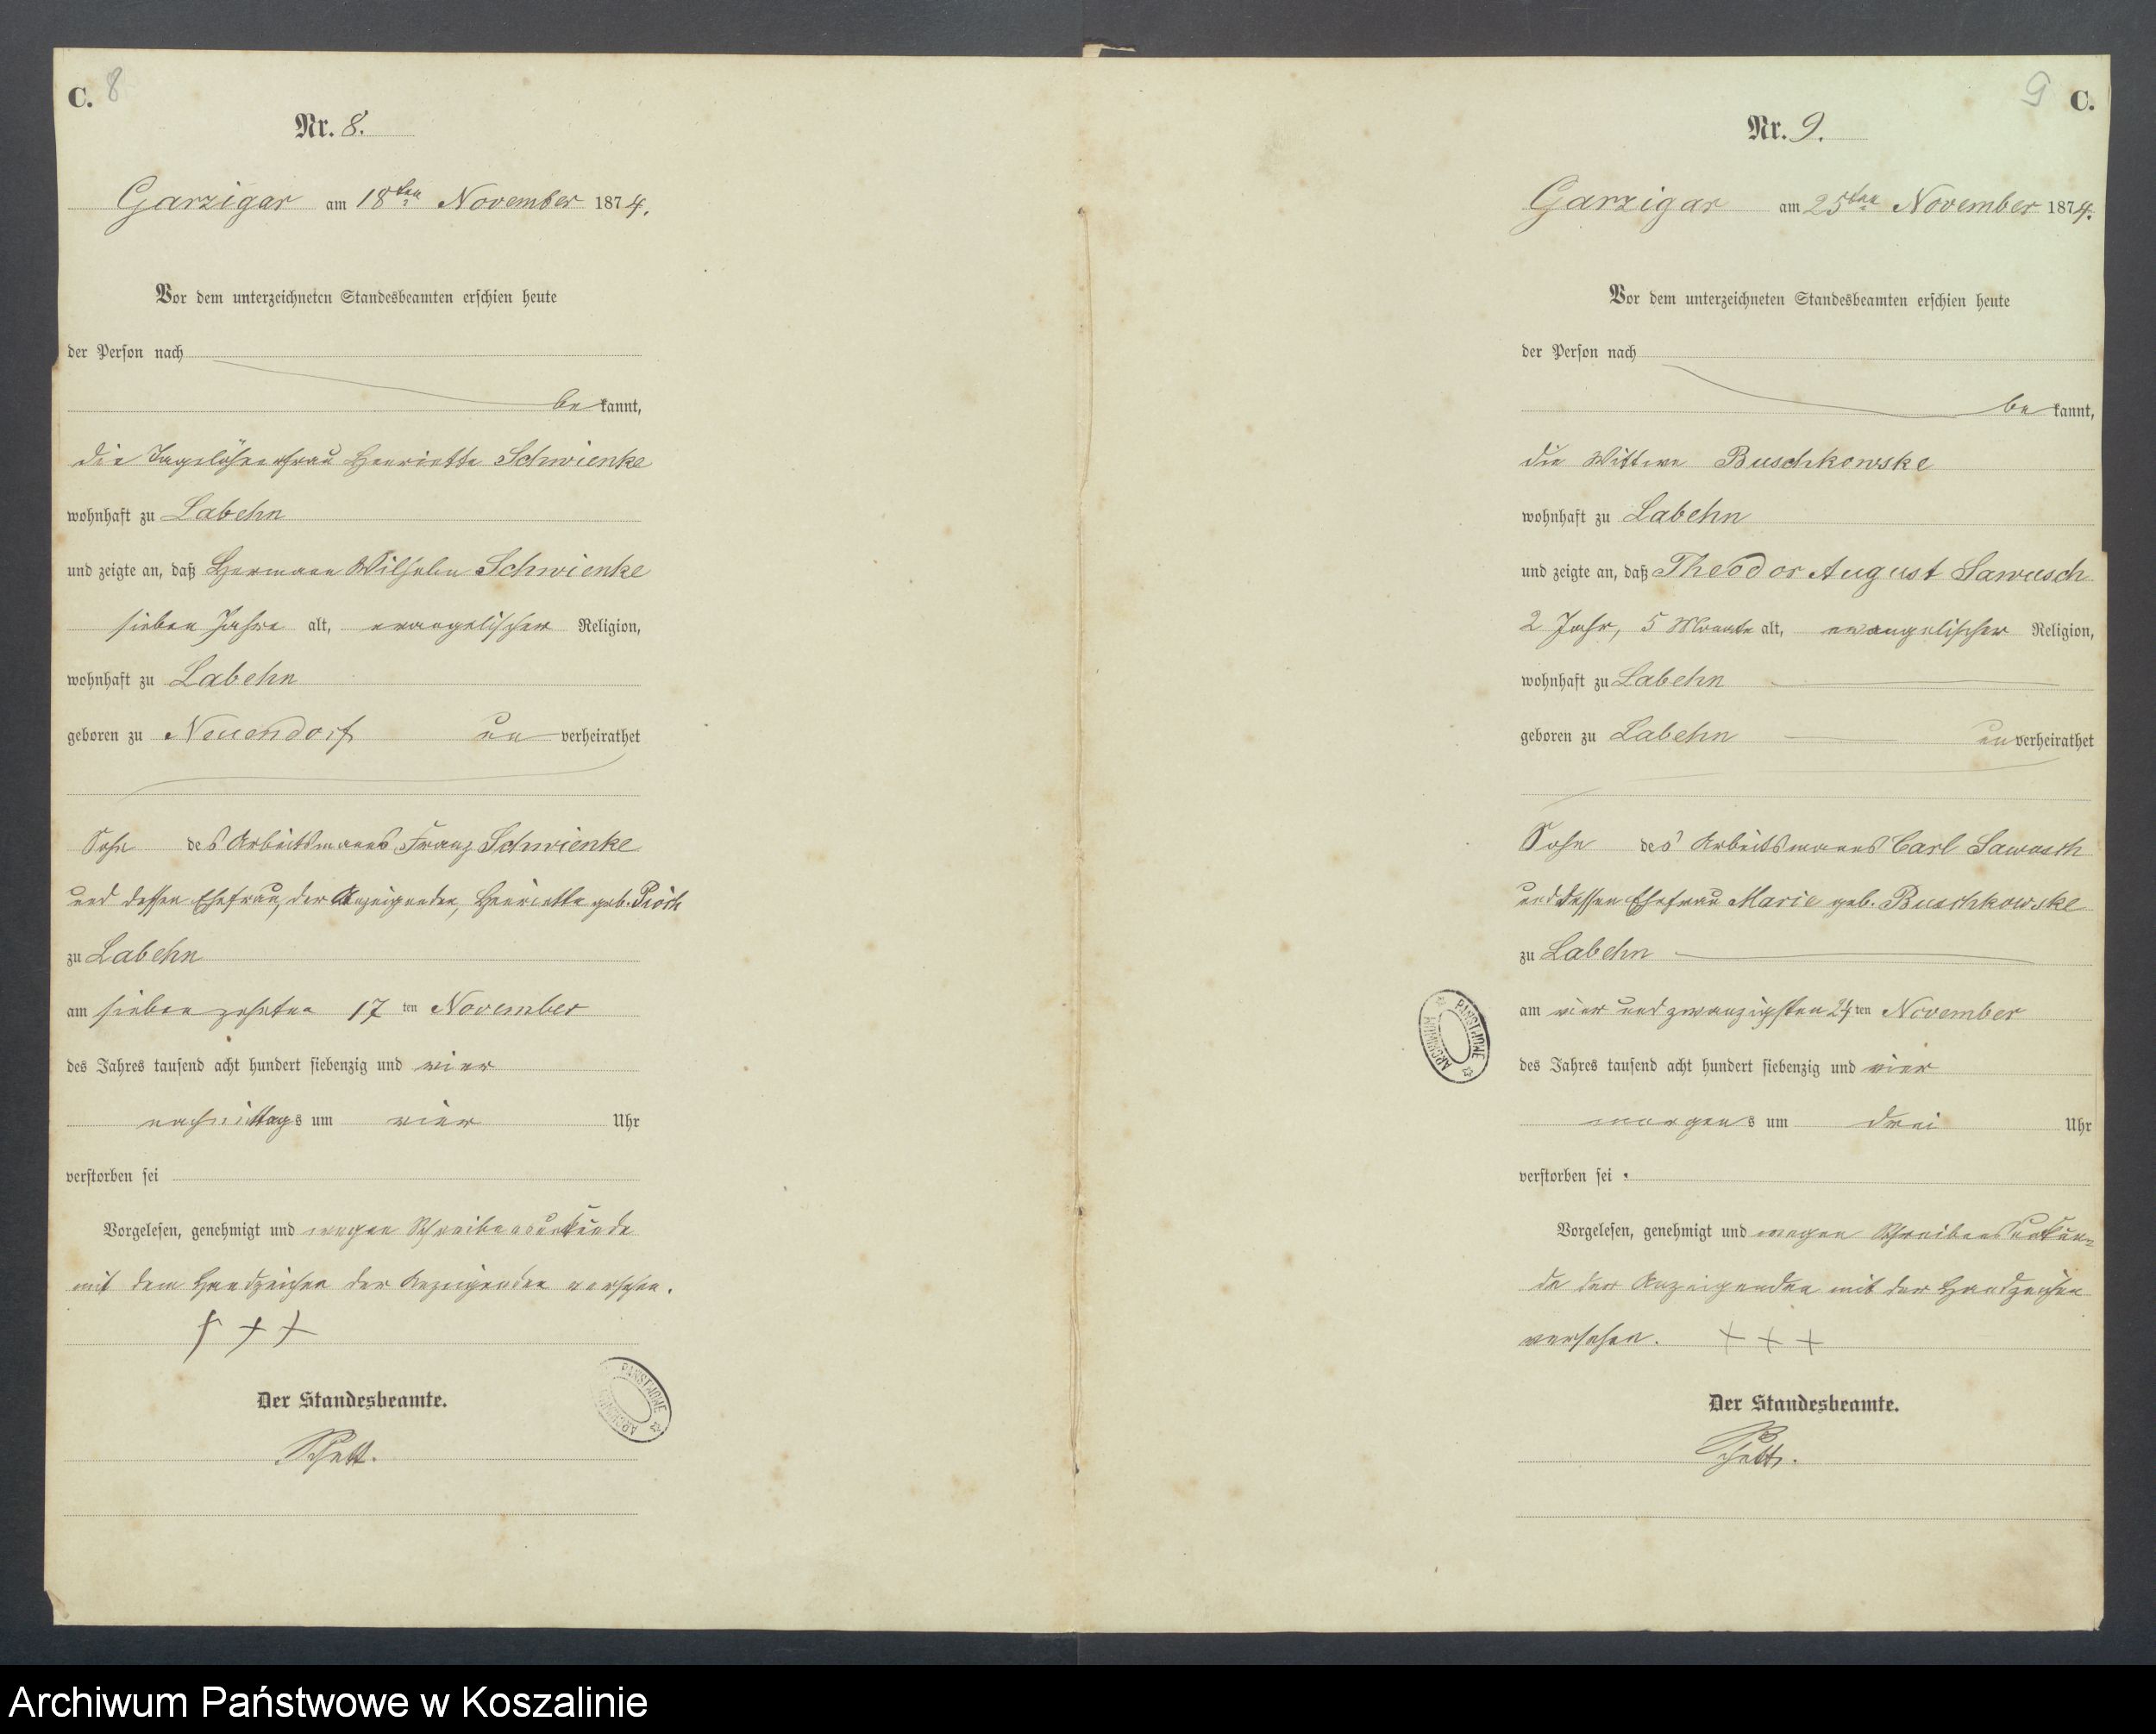 C. 8
Nr. 8.
Garzigar am 18ten November 1874.
Vor dem unterzeichneten Standesbeamten erschien heute
der Person nach
bekannt,
die Tagelöhnerfrau Henriette Schwienke
wohnhaft zu Labehn
und zeigte an, daß Hermann Wilhelm Schwienke
sieben Jahre alt, evangelischer Religion,
wohnhaft zu Labehn
geboren zu Neuendorf unverheirathet
Sohn des Arbeitsmanns Franz Schwienke
und dessen Ehefrau, der Anzeigenden, Henriette geb.
zu Labehn
am siebenzehnten 17 ten November
des Jahres tausend acht hundert siebenzig und vier
nachmittags um vier Uhr
verstorben sei
Vorgelesen, genehmigt und wegen Schreibensunkunde
mit dem Handzeichen der Anzeigenden versehen.
+ + +
Der Standesbeamte.
ARCHIWUM PAŃSTWOWE
9 C.
Nr. 9.
Garzigar am 25ten November 1874.
Vor dem unterzeichneten Standesbeamten erschien heute
der Person nach
bekannt,
die Wittwe Buschkowske
wohnhaft zu Labehn
und zeigte an, daß Theodor August Sawasch
2 Jahr, 5 Monate alt, evangelischer Religion,
wohnhaft zu Labehn
geboren zu Labehn unverheirathet
Sohn des Arbeitsmanns Carl Sawasch
und dessen Ehefrau Marie geb. Buschkowske
zu Labehn
am vier und zwanzigsten 24 ten November
des Jahres tausend acht hundert siebenzig und vier
morgens um drei Uhr
verstorben sei.
Vorgelesen, genehmigt und wegen Schreibensunkun-
de der Anzeigenden mit der Handzeichen
versehen. + + +
Der Standesbeamte.
ARCHIWUM PAŃSTWOWE
Archiwum Państwowe w Koszalinie